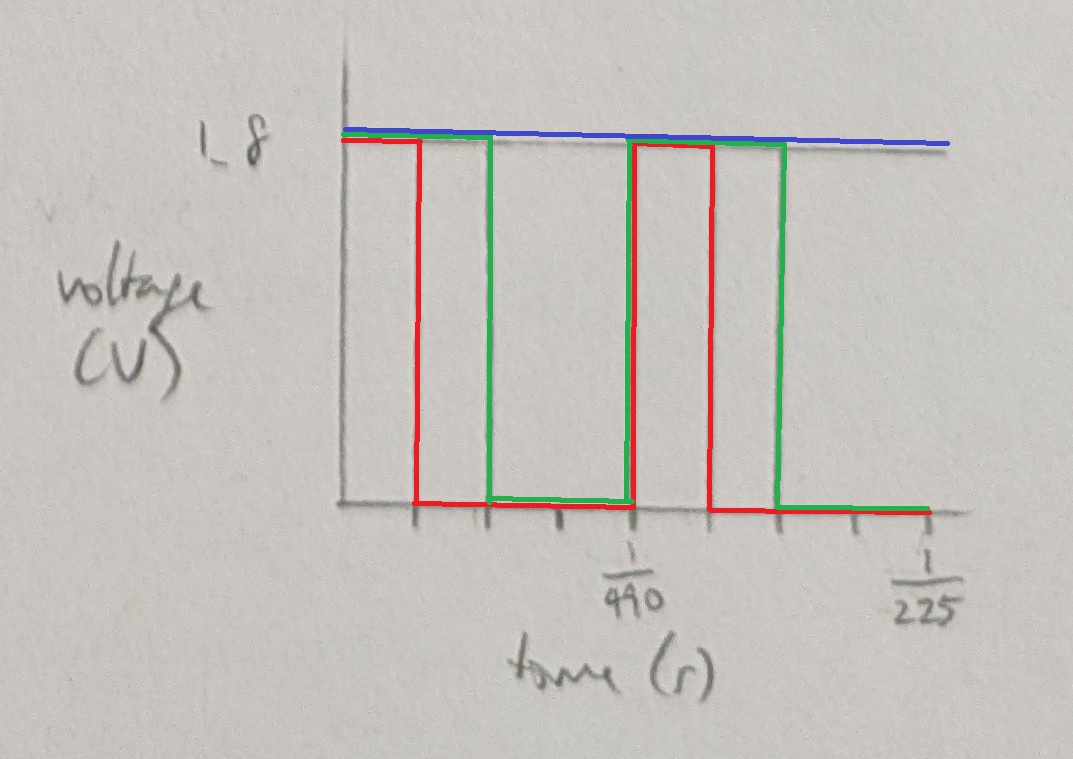 1_8
voltage
(V)
1
490
1
225
time (s)